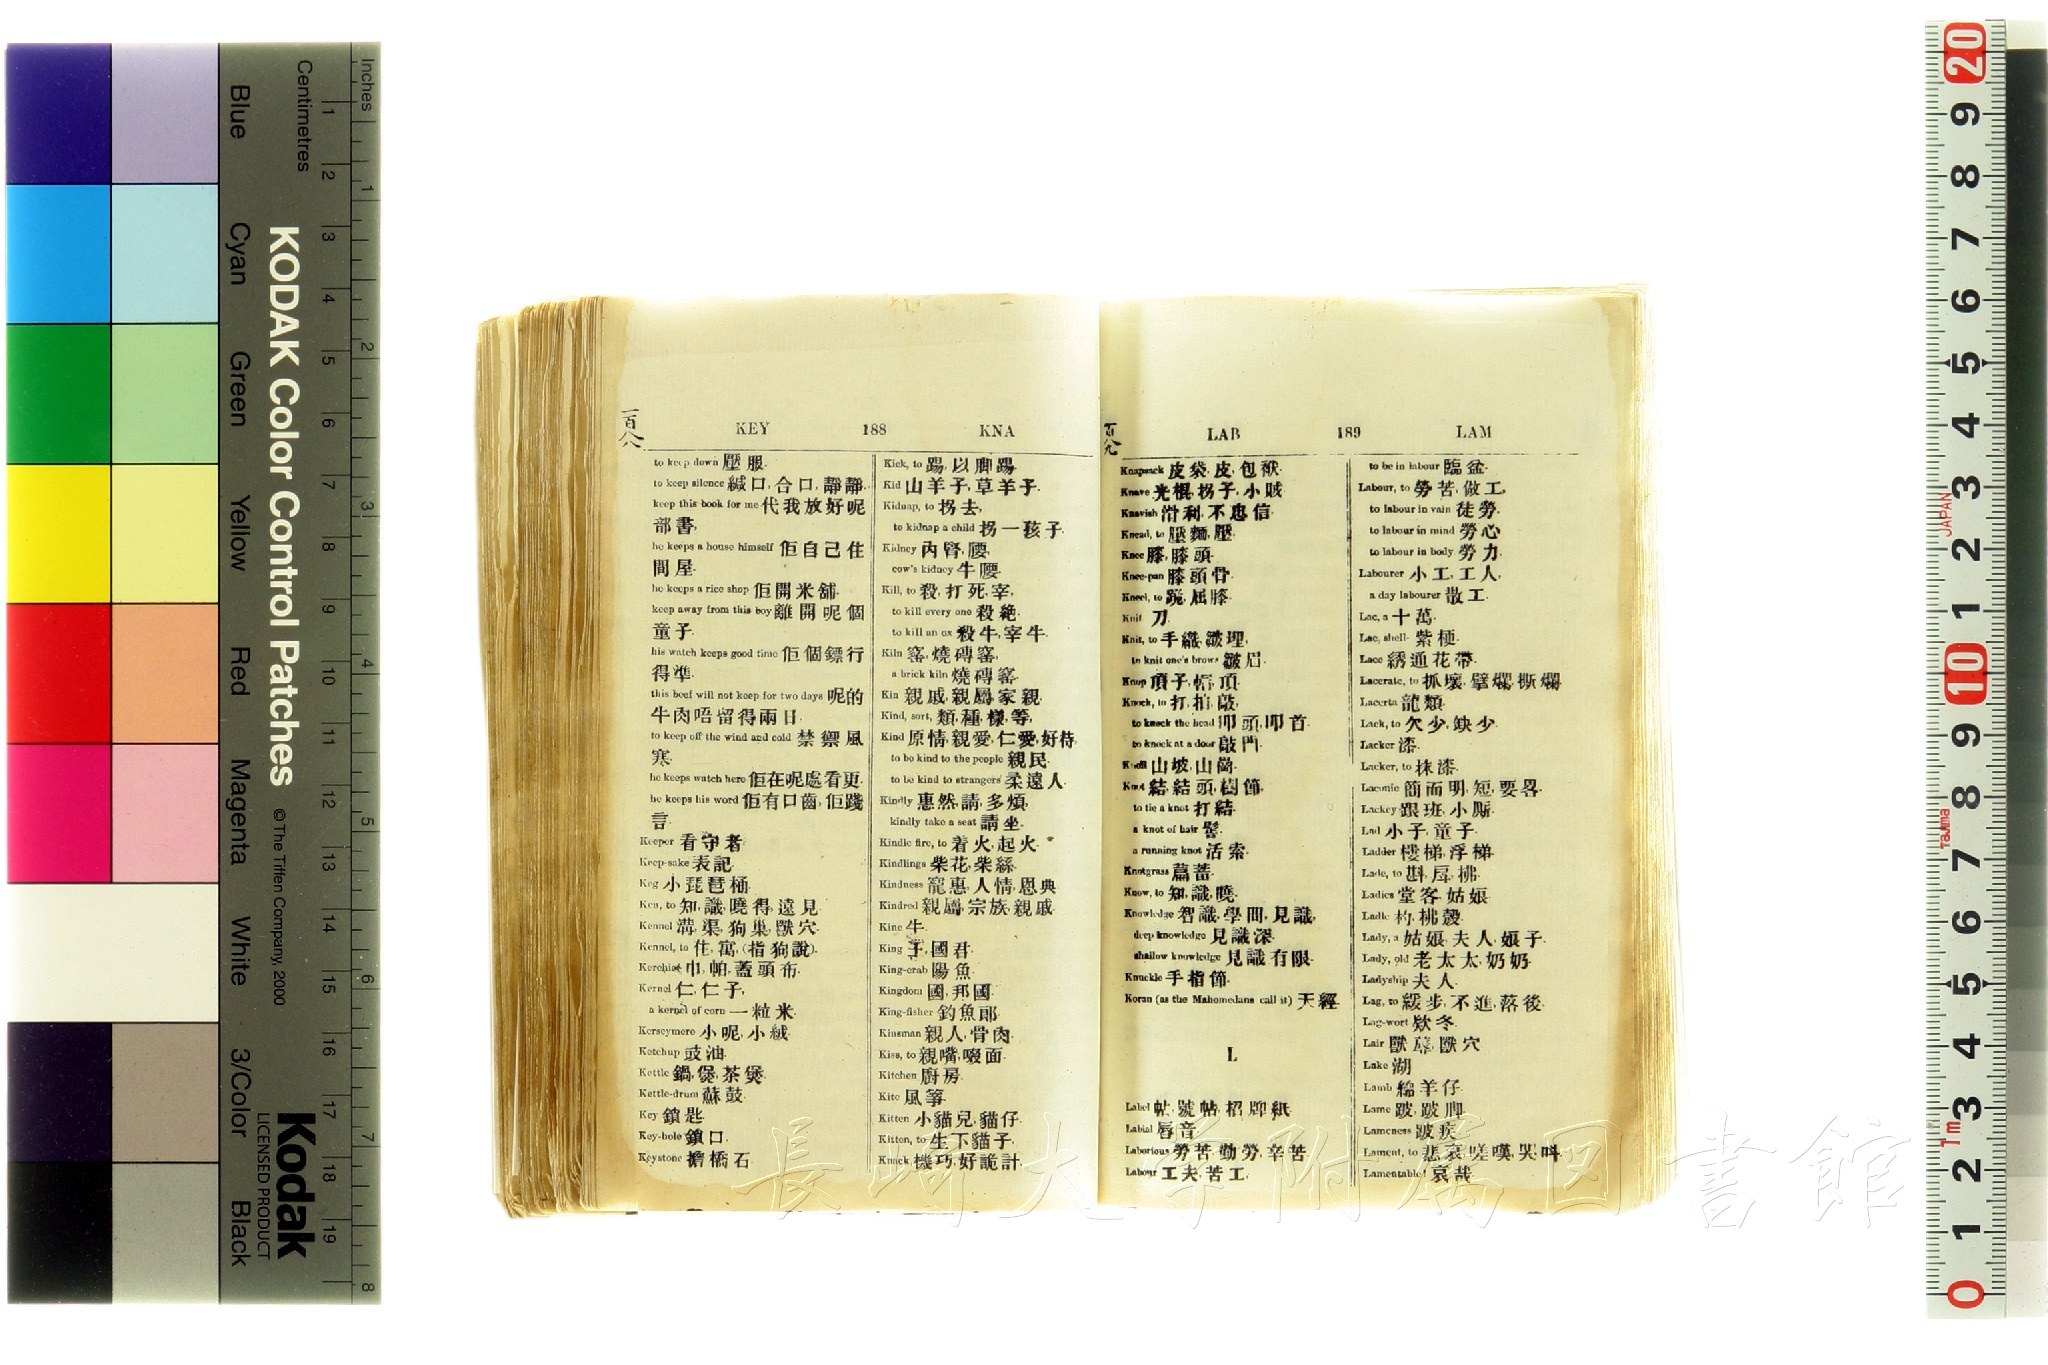 Inches
Centimetres
KODAK Color Control Patches
© The Tiffen Company, 2000
Kodak
LICENSED PRODUCT
Blue
Cyan
Green
Yellow
Red
Magenta
White
3/Color
Black
一百八八
KEY 188 KNA
to keep down 壓服.
to keep silence 緘口,合口,靜靜.
keep this book for me 代我放好呢
部書.
he keeps a house himself 佢自己住
間屋.
he keeps a rice shop 佢開米舖.
keep away from this boy 離開呢個
童子.
his watch keeps good time 佢個鏢行
得準.
this beef will not keep for two days 呢的
牛肉唔留得兩日.
to keep off the wind and cold 禁禦風
寒.
he keeps watch here 佢在呢處看更.
he keeps his word 佢有口齒,佢踐
言.
Keeper 看守者.
Keep-sake 表記.
Keg 小琵琶桶.
Ken, to 知,識,曉得,遠見.
Kennel 溝,渠,狗巢,獸穴.
Kennel, to 住,寓,(指狗說).
Kerchief 巾,帕,蓋頭布.
Kernel 仁,仁子.
a kernel of corn 一粒米.
Kerseymere 小呢,小絨.
Ketchup 豉油.
Kettle 鍋,煲,茶煲.
Kettle-drum 蘇鼓.
Key 鎖匙.
Key-hole 鎖口.
Keystone 擔橋石.
Kick, to 踢,以脚踢.
Kid 山羊子,草羊子.
Kidnap, to 拐去.
to kidnap a child 拐一孩子.
Kidney 內腎,腰.
cow's kidney 牛腰.
Kill, to 殺,打死,宰.
to kill every one 殺絕.
to kill an ox 殺牛,宰牛.
Kiln 窰,燒磚窰.
a brick kiln 燒磚窰.
Kin 親戚,親屬,家親.
Kind, sort, 類,種,樣,等.
Kind 原情,親愛,仁愛,好待.
to be kind to the people 親民.
to be kind to strangers 柔遠人.
Kindly 惠然,請,多煩.
kindly take a seat 請坐.
Kindle fire, to 着火,起火.
Kindlings 柴花,柴絲.
Kindness 寵惠,人情,恩典.
Kindred 親屬,宗族,親戚.
Kine 牛.
King 王,國君.
King-crab 陽魚.
Kingdom 國,邦國.
King-fisher 釣魚郎.
Kinsman 親人,骨肉.
Kiss, to 親嘴,啜面.
Kitchen 廚房.
Kite 風箏.
Kitten 小貓兒,貓仔.
Kitten, to 生下貓子.
Knack 機巧,好詭計.
百八九
LAB 189 LAM
Knapsack 皮袋,皮,包袱.
Knave 光棍,拐子,小賊.
Knavish 滑利,不忠信.
Knead, to 壓麵,壓.
Knee 膝,膝頭.
Knee-pan 膝頭骨.
Kneel, to 跪,屈膝.
Knif 刀.
Knit, to 手織,皺理.
to knit one's brows 皺眉.
Knop 頂子,帽頂.
Knock, to 打,拍,敲.
to knock the head 叩頭,叩首.
to knock at a door 敲門.
Knoll 山坡,山崗.
Knot 結,結頭,樹節.
to tie a knot 打結.
a knot of hair 髻.
a running knot 活索.
Knotgrass 萹蓄.
Know, to 知,識,曉.
Knowledge 智識,學問,見識.
deep knowledge 見識深.
shallow knowledge 見識有限.
Knuckle 手指節.
Koran (as the Mahomedans call it) 天經.
L
Label 帖,號帖,招牌紙.
Labial 唇音.
Laborious 勞苦,勤勞,辛苦.
Labour 工夫,苦工.
to be in labour 臨盆.
Labour, to 勞苦,做工.
to labour in vain 徒勞.
to labour in mind 勞心.
to labour in body 勞力.
Labourer 小工,工人.
a day labourer 散工.
Lac, a 十萬.
Lac, shell- 紫梗.
Lace 綉通花帶.
Lacerate, to 抓壞,擘爛,撕爛.
Lacerta 龍類.
Lack, to 欠少,缺少.
Lacker 漆.
Lacker, to 抹漆.
Laconic 簡而明,短,要畧.
Lackey 跟班,小厮.
Lad 小子,童子.
Ladder 樓梯,浮梯.
Lade, to 斟,戽
Ladies 堂客,姑娘.
Ladle
Lady, a 姑娘,夫人,娘子.
Lady, old 老太太,奶奶.
Ladyship 夫人.
Lag, to 緩步,不進,落後.
Lag-wort 欵冬.
Lair 獸 獸穴.
Lake 湖.
Lamb 綿羊仔.
Lame 跛,跛脚.
Lameness 跛疾.
Lament, to 悲哀,嗟嘆,哭
Lamentable! 哀哉.
長崎大学附属図書館
JAPAN
Tajima
1m